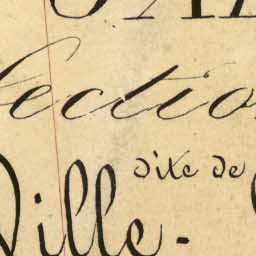 lectio
dite de
Ville-